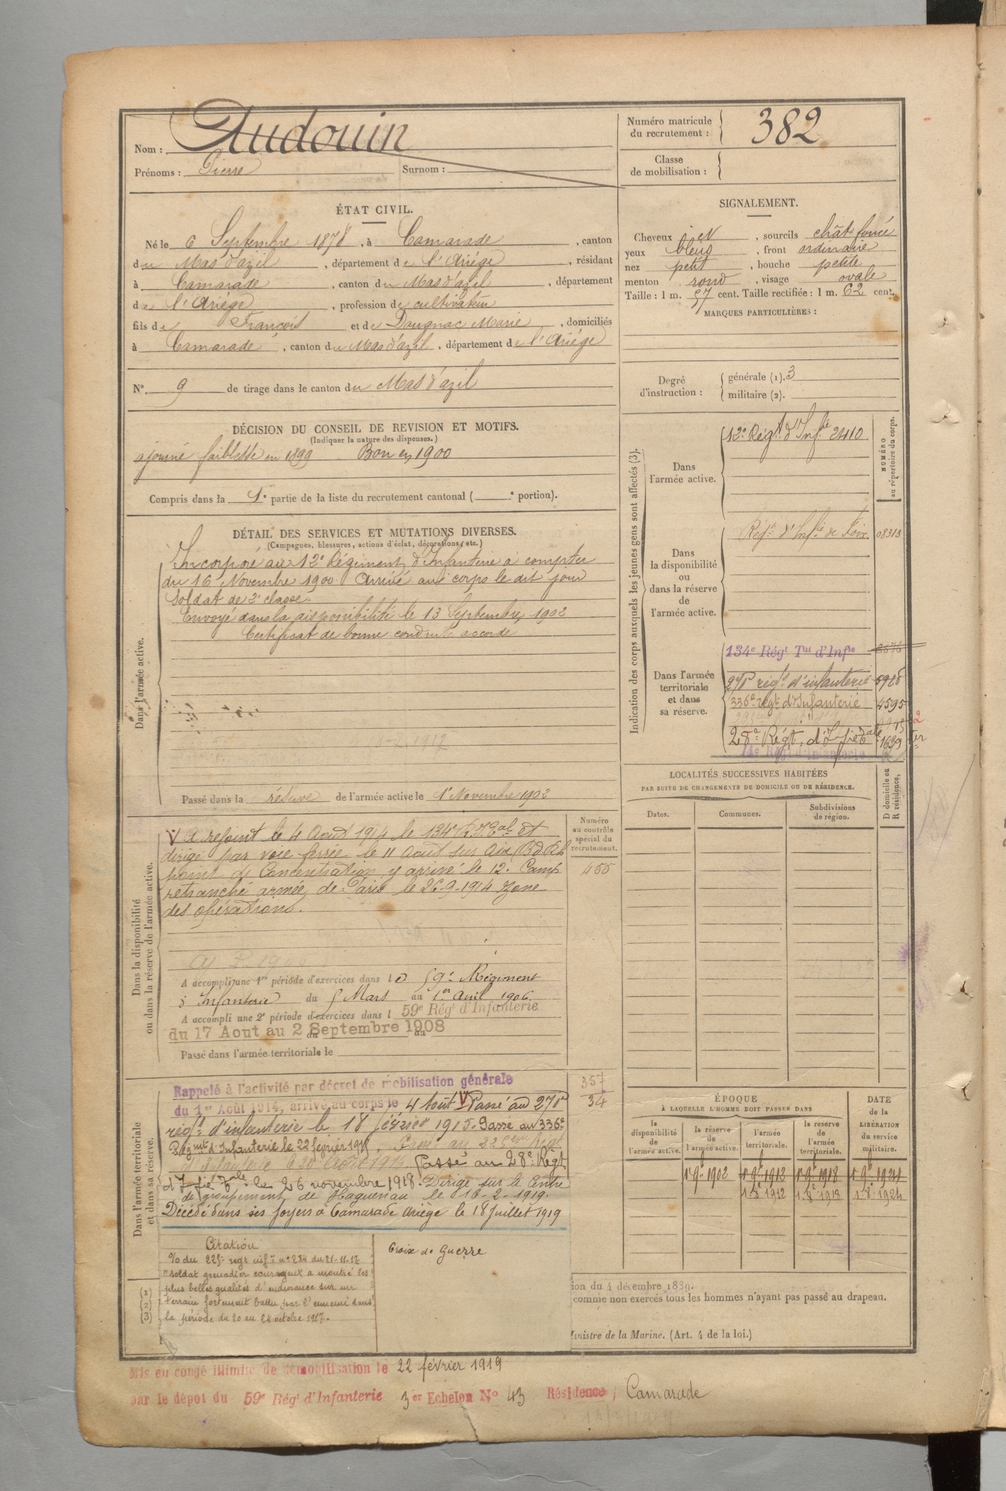 Nom : Audouin
Prénoms : Pierre Surnom :
Numéro matricule du recrutement : 382
Classe de mobilisation :
ÉTAT CIVIL.
Né le 6 Septembre 1878, à Camarade, canton
du Mas d'azil, département de l'Ariège, résidant
à Camarade, canton du Mas d'azil, département
de l'Ariège, profession de cultivateur
fils de François et de Daugnac Marie, domiciliés
à Camarade, canton du Mas d'azil, département de l'Ariège
N° 9 de tirage dans le canton du Mas d'azil
SIGNALEMENT.
Cheveux et, sourcils chât foncé
yeux bleus, front ordinaire
nez petit, bouche petite
menton rond, visage ovale
Taille : 1 m. 57 cent. Taille rectifiée : 1 m. 62 cent.
MARQUES PARTICULIÈRES :
Degré d'instruction : générale (1). 3
militaire (2).
DÉCISION DU CONSEIL DE REVISION ET MOTIFS.
(Indiquer la nature des dispenses.)
ajourné faiblesse en 1899 Bon en 1900
Compris dans la 1e partie de la liste du recrutement cantonal ( e portion).
DÉTAIL DES SERVICES ET MUTATIONS DIVERSES.
(Campagnes, blessures, actions d'éclat, décorations, etc.)
Dans l'armée active.
Incorporé au 12e Régiment d'Infanterie à compter
du 16 Novembre 1900 Arrivé au corps le dit jour
Soldat de 2e classe.
Envoyé dans la disponibilité le 13 Septembre 1902
Certificat de bonne conduite accordé
Passé dans la réserve de l'armée active le 1 Novembre 1902
Dans la disponibilité ou dans la réserve de l'armée active.
V A rejoint le 4 Aout 1914 le 134e R. Tal et
dirigé par voie ferrée le 11 Aout sur Aix
point de Concentration y arrivé le 12. Camp
retranché armée de Paris le 26.9.1914 Zone
des opérations.
A accompli une 1re période d'exercices dans le 59e Régiment
d'Infanterie du 5 Mars au 1er Avril 1906
A accompli une 2e période d'exercices dans l 59e Régt d'Infanterie
du 17 Aout au 2 Septembre 1908
Passé dans l'armée territoriale le
Numéro au contrôle spécial du recrutement.
455
357
34
Dans l'armée territoriale et dans sa réserve.
Rappelé à l'activité par décret de mobilisation générale
du 1er Août 1914, arrivé au corps le 4 Aout V Passé au 270e
régt d'infanterie le 18 février 1915. Passé au 336e
Régmt d'Infanterie le 22 février
Passé au 28e Régt
d'Infie le 26 novembre 1918. Dirigé sur le Centre
de groupement de Haguenau le 16-2-1919.
Décédé dans ses foyers à Camarade Ariège le 18 juillet 1919
Citation
soldat grenadier courageux a montré les
plus belles qualités d'endurance sur un
terrain fortement battu par l'ennemi dans
la période du 20 au 28 octobre 1917.
Croix de Guerre
(1)
(2)
(3)
Indication des corps auxquels les jeunes gens sont affectés (3).
NUMÉRO au répertoire du corps.
Dans l'armée active.
12e Régt d'Infie 2410
Dans la disponibilité ou dans la réserve de l'armée active.
Régt d'Infie de Foix
Dans l'armée territoriale et dans sa réserve.
134e Régt Tal d'Infie
270e régt d'infanterie
336e régt d'Infanterie 4595
28e Régt
LOCALITÉS SUCCESSIVES HABITÉES
PAR SUITE DE CHANGEMENTS DE DOMICILE OU DE RÉSIDENCE.
Dates. Communes. Subdivisions de région. D domicile ou R résidence.
ÉPOQUE
À LAQUELLE L'HOMME DOIT PASSER DANS
la disponibilité de l'armée active. la réserve de l'armée active. l'armée territoriale. la réserve de l'armée territoriale.
DATE de la LIBÉRATION du service militaire.
1 9bre 1902 1 9bre 1912 1 9bre 1918 1 9bre 1924
ion du 4 décembre 1889.
comme non exercés tous les hommes n'ayant pas passé au drapeau.
inistre de la Marine. (Art. 4 de la loi.)
Mis en congé illimité de démobilisation le 22 février 1919
par le dépôt du 59e Régt d'Infanterie 3er Echelon N° 43 Résidence, Camarade